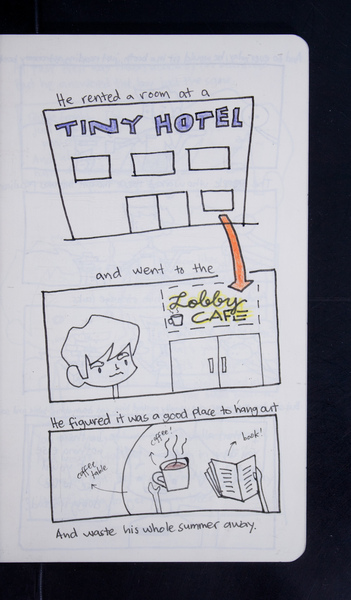 He rented a room at a
TINY HOTEL
and went to the
Lobby
CAFE
He figured it was a good place to hang out
coffee!
book!
coffee
table
And waste his whole summer away.